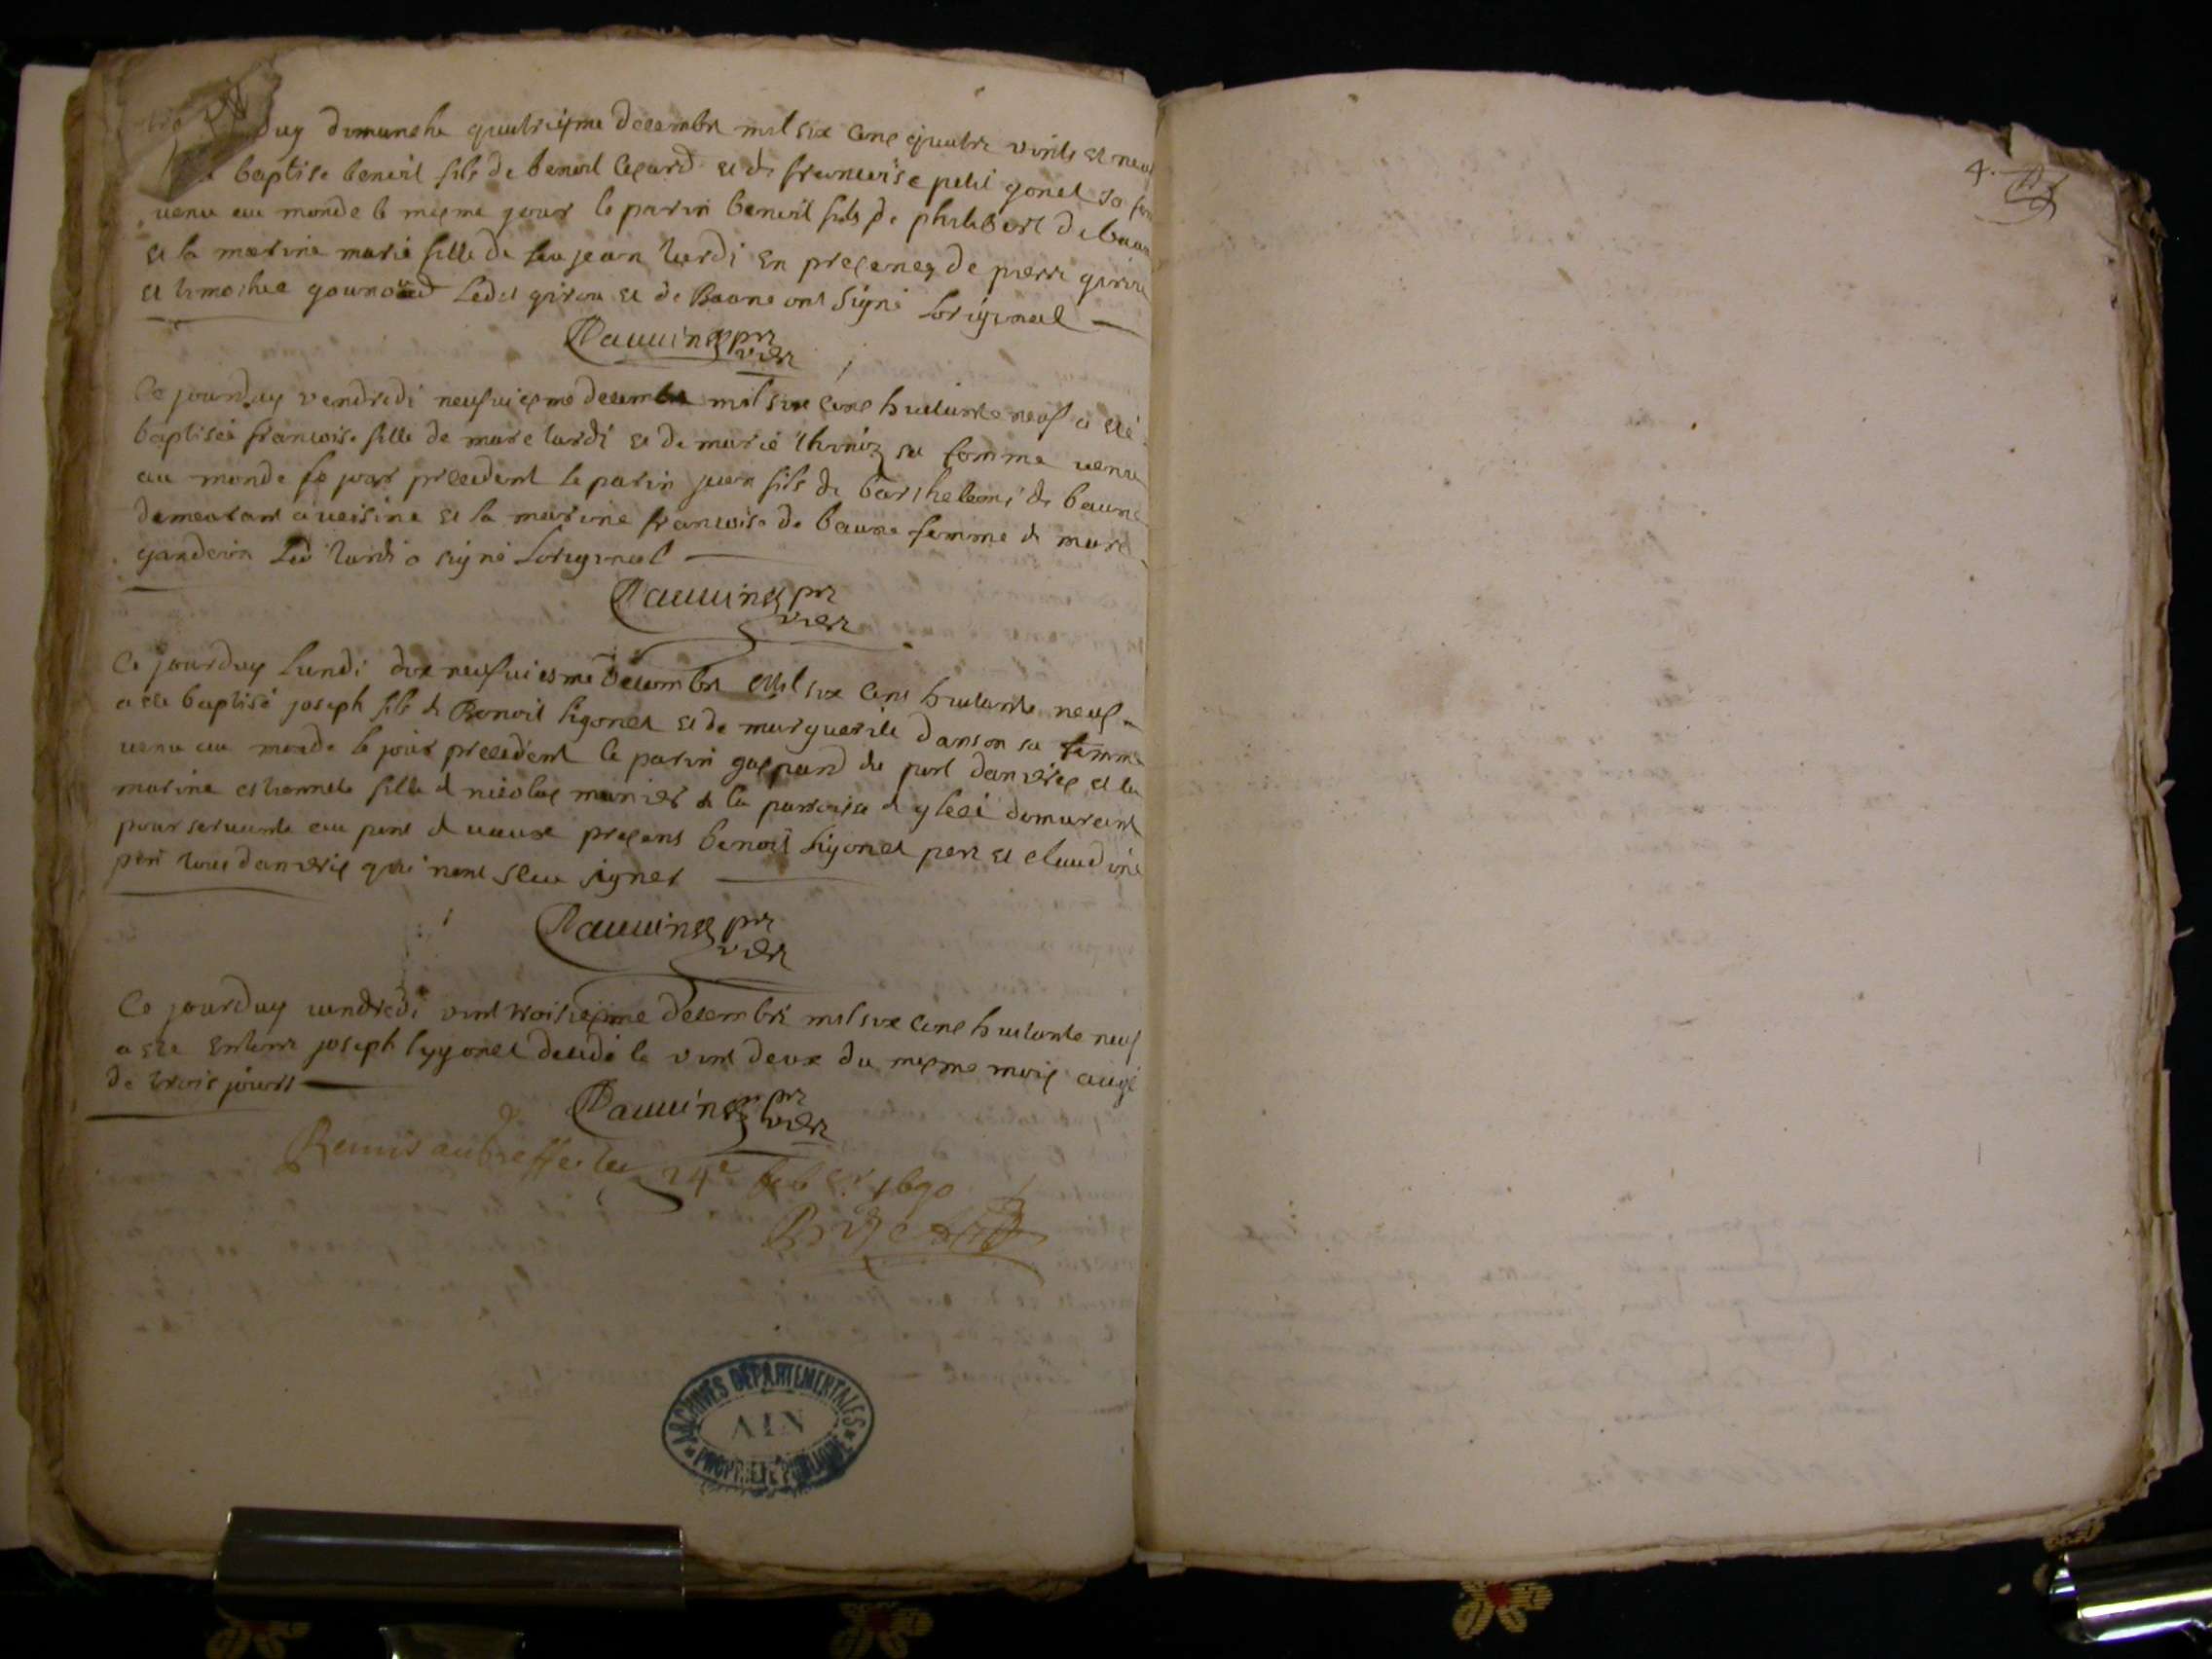 duy dimanche quatriesme decembre mil six cens quatre vints et neuf
baptise benoit fils de benoit et de francoise petit gonet sa
venu au monde le mesme jour le parin benoit fils de philibert de baune
et la marine marie fille de feu jean tardi en presences de pierre girou
et timothee ledit girou et de Baune ont signé Loriginal
pre
vicre
Ce jourduy vendredi neufuiesme decembre mil six cens huitante neuf a été
baptisée francoise fille de marc tardi et de marie sa femme venu
au monde le jour precedent le parin jean fils de barthelemi de baune
demeurant a veisine et la marine francoise de baune femme de marc
Led tardi a signé Loriginal
pre
vicre
Ce jourduy Lundi dix neufuiesme decembre Mil six cens huitante neuf
a ete baptisé joseph fils de Benoit ligonet et de marguerite danson sa femme
venu au monde le jour precedent le parin gaspard du port danieres et la
marine estiennete fille d nicolas munier de la parroisse d demurant
pour servante au pont d vaux presens benoit ligonet pere et claudine
tous qui nont sceu signer
pre
vicre
Ce jourduy vendredi vint troisiesme decembre mil six cens huitante neuf
a ete enterré joseph lygonet decedé le vint deux du mesme mois augé
de trois jours
pre
vicre
Remis au greffe le 24e feber 1690
4.
ARCHIVES DÉPARTEMENTALES
AIN
PROPRIÉTÉ PUBLIQUE